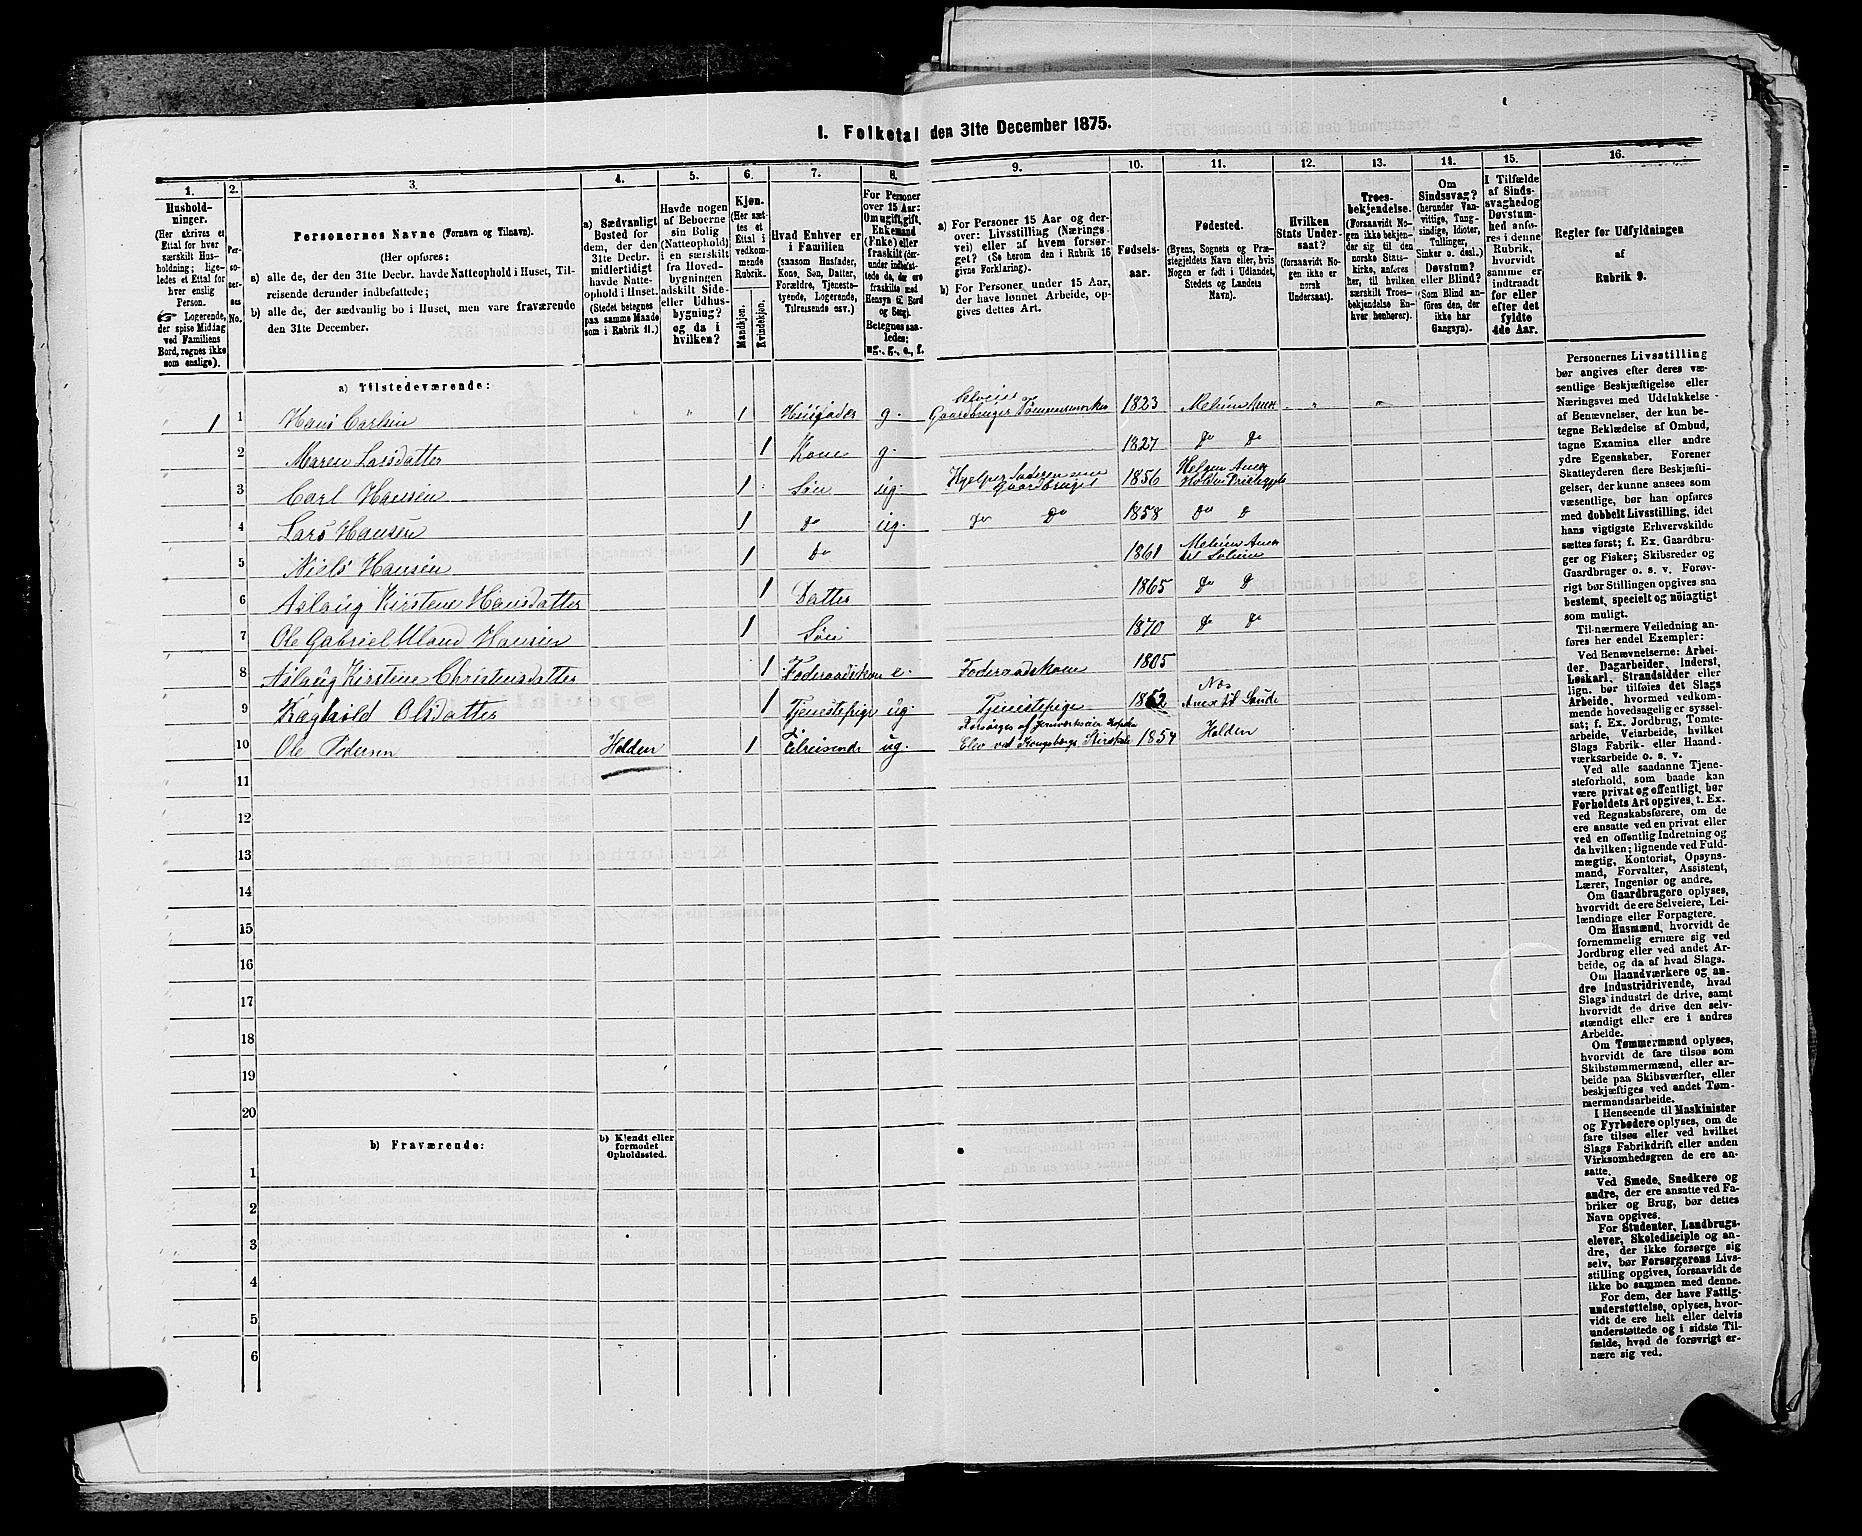 I. Folketal den 31te December 1875.
1. 2. 3. 4. 5. 6. 7. 8. 9. 10. 11. 12. 13. 14. 15. 16.
Hushold-
ninger.
(Her skrives et
Ettal for hver
særskilt Hus-
holdning; lige-
ledes et Ettal for
hver enslig
Person.
Logerende,
der spise Middag
ved Familiens
Bord, regnes ikke
som enslige).
Per-
so-
ner-
nes
No.
Personernes Navne (Fornavn og Tilnavn).
(Her opføres:
a) alle de, der den 31te Decbr. havde Natteophold i Huset, Til-
reisende derunder indbefattede;
b) alle de, der sædvanlig bo i Huset, men vare fraværende
den 31te December.
a) Sædvanligt
Bosted for
dem, der den
31te Decbr.
midlertidigt
havde Natte-
ophold i Huset.
(Stedet betegnes
paa samme Maade
som i Rubrik 11.)
Havde nogen
af Beboerne
sin Bolig
(Natteophold)
i en særskilt
fra Hoved-
bygningen
adskilt Side-
eller Udhus-
bygning?
og da i
hvilken?
Kjøn.
(Her sæt-
tes et
Ettal i
vedkom-
mende
Rubrik.
Mandkjøn.
Kvindekjøn.
Hvad Enhver er
i Familien
(saasom Husfader,
Kone, Søn, Datter,
Forældre, Tjeneste-
tyende, Logerende,
Tilreisende osv.)
For Personer
over 15 Aar:
Om ugift, gift,
Enkemand
(Enke) eller
fraskilt (der-
under indbefat-
tede da, der ere
fraskilte med
Hensyn til Bord
og Seng).
Betegnes saa-
ledes:
ug., g., e., f.
a) For Personer 15 Aar og der-
over: Livsstilling (Nærings-
vei) eller af hvem forsør-
get? (Se herom den i Rubrik 16
givne Forklaring).
b) For Personer under 15 Aar,
der have lønnet Arbeide, op-
gives dettes Art.
Fødsels-
aar.
Fødested.
(Byens, Sognets og Præ-
stegjeldets Navn, eller, hvis
Nogen er født i Udlandet,
Stedets og Landets
Navn).
Hvilken
Stats Under-
saat?
(forsaavidt No-
gen ikke er
norsk
Undersaat).
Troes-
bekjendelse.
(Forsaavidt No-
gen ikke bekjen-
der sig til den
norske Stats-
kirke, anføres
her, til hvilken
særskilt Troes-
bekjendelse En-
hver henhører).
Om
Sindssvag?
(herunder Van-
vittige, Tung-
sindige, Idioter,
Tullinger,
Sinker o. desl.)
Døvstum?
eller Blind?
(Som Blind an-
føres den, der
ikke har
Gangsyn).
I Tilfælde
af Sinds-
svaghed og
Døvstum-
hed anfø-
res i denne
Rubrik,
hvorvidt
samme er
indtraadt
før eller
efter det
fyldte
4de Aar.
Regler for Udfyldningen
af
Rubrik 9.
a) Tilstedeværende:
1 1 Hans Carlsen " " 1 Husfader g. Selveier og Gaardbruger Tømmermærker 1823 Melum Anex " "
2 Maren Larsdatter 1 Kone g. 1827 do do
3 Carl Hansen 1 Søn ug. Hjelper Faderen med Gaardbruget 1856 Helgen Anex Holden Prestegjeld
4 Lars Hansen 1 do ug. do do 1858 do do
5 Niels Hansen 1 do 1861 Melum Anex til Solum
6 Aslaug Kirstene Hansdatter 1 Datter 1865 do do
7 Ole Gabriel Uland Hansen 1 Søn 1870 do do
8 Aslaug Kirstine Christensdatter 1 Føderaadskone e. Føderaadskone 1805
9 Ragnild Olsdatter 1 Tjenestepige ug. Tjenestepige 1852 Næs Anex til Saude
10 Ole Pedersen Holden 1 Tilreisende ug. Forsørges af Jernværkseier Elev ved Kongsbergs Stiskole 1854 Holden
11
12
13
14
15
16
17
18
19
20
b) Fraværende: b) Kjendt eller
formodet
Opholdssted.
1
2
3
4
5
6
Personernes Livsstilling
bør angives efter deres væ-
sentlige Beskjæftigelse eller
Næringsvei med Udelukkelse
af Benævnelser, der kun be-
tegne Beklædelse af Ombud,
tagne Examina eller andre
ydre Egenskaber. Forener
Skatteyderen flere Beskjæfti-
gelser, der kunne ansees som
væsentlige, bør han opføres
med dobbelt Livsstilling, idet
hans vigtigste Erhvervskilde
sættes først; f. Ex. Gaardbru-
ger og Fisker; Skibsreder og
Gaardbruger o. s. v. Forøv-
rigt bør Stillingen opgives saa
bestemt, specielt og nøiagtigt
som muligt.
Til nærmere Veiledning an-
føres her endel Exempler:
Ved Benævnelserne: Arbei-
der, Dagarbeider, Inderst,
Løskarl, Strandsidder eller
lign. bør tilføies det Slags
Arbeide, hvormed vedkom-
mende hovedsagelig er syssel-
sat; f. Ex. Jordbrug, Tomte-
arbeide, Veiarbeide, hvilket
Slags Fabrik- eller Haand-
værksarbeide o. s. v.
Ved alle saadanne Tjene-
steforhold, som baade kan
være privat og offentligt, bør
Forholdets Art opgives, t. Ex.
ved Regnskabsførere, om de
ere ansatte ved en privat eller
ved en offentlig Indretning og
da hvilken; lignende ved Fuld-
mægtig, Kontorist, Opsyns-
mand, Forvalter, Assistent,
Lærer, Ingeniør og andre.
Om Gaardbrugere oplyses,
hvorvidt de ere Selveiere, Lei-
lændinge eller Forpagtere.
Om Husmænd, hvorvidt de
fornemmelig ernære sig ved
Jordbrug eller ved andet Ar-
beide, og da af hvad Slags.
Om Haandværkere og an-
dre Industridrivende, hvad
Slags Industri de drive, samt
hvorvidt de drive den selv-
stændigt eller ere i andres
Arbeide.
Om Tømmermænd oplyses,
hvorvidt de fare tilsøs som
Skibstømmermænd, eller ar-
beide paa Skibsværfter, eller
beskjæftiges ved andet Tøm-
mermandsarbeide.
I Henseende til Maskinister
og Fyrbødere oplyses, om de
fare tilsøs eller ved hvilket
Slags Fabrikdrift eller anden
Virksomhedsgren de ere an-
satte.
Ved Smede, Snedkere og
andre, der ere ansatte ved Fa-
briker og Brug, bør dettes
Navn opgives.
For Studenter, Landbrugs-
elever, Skoledisciple og an-
dre, der ikke forsørge sig
selv, bør Forsørgerens Livs-
stilling opgives, forsaavidt de
ikke bo sammen med denne.
For dem, der have Fattig-
understøttelse, oplyses, hvor-
vidt de ere helt eller delvis
understøttede og i sidste Til-
fælde, hvad de forøvrigt er-
nære sig ved.